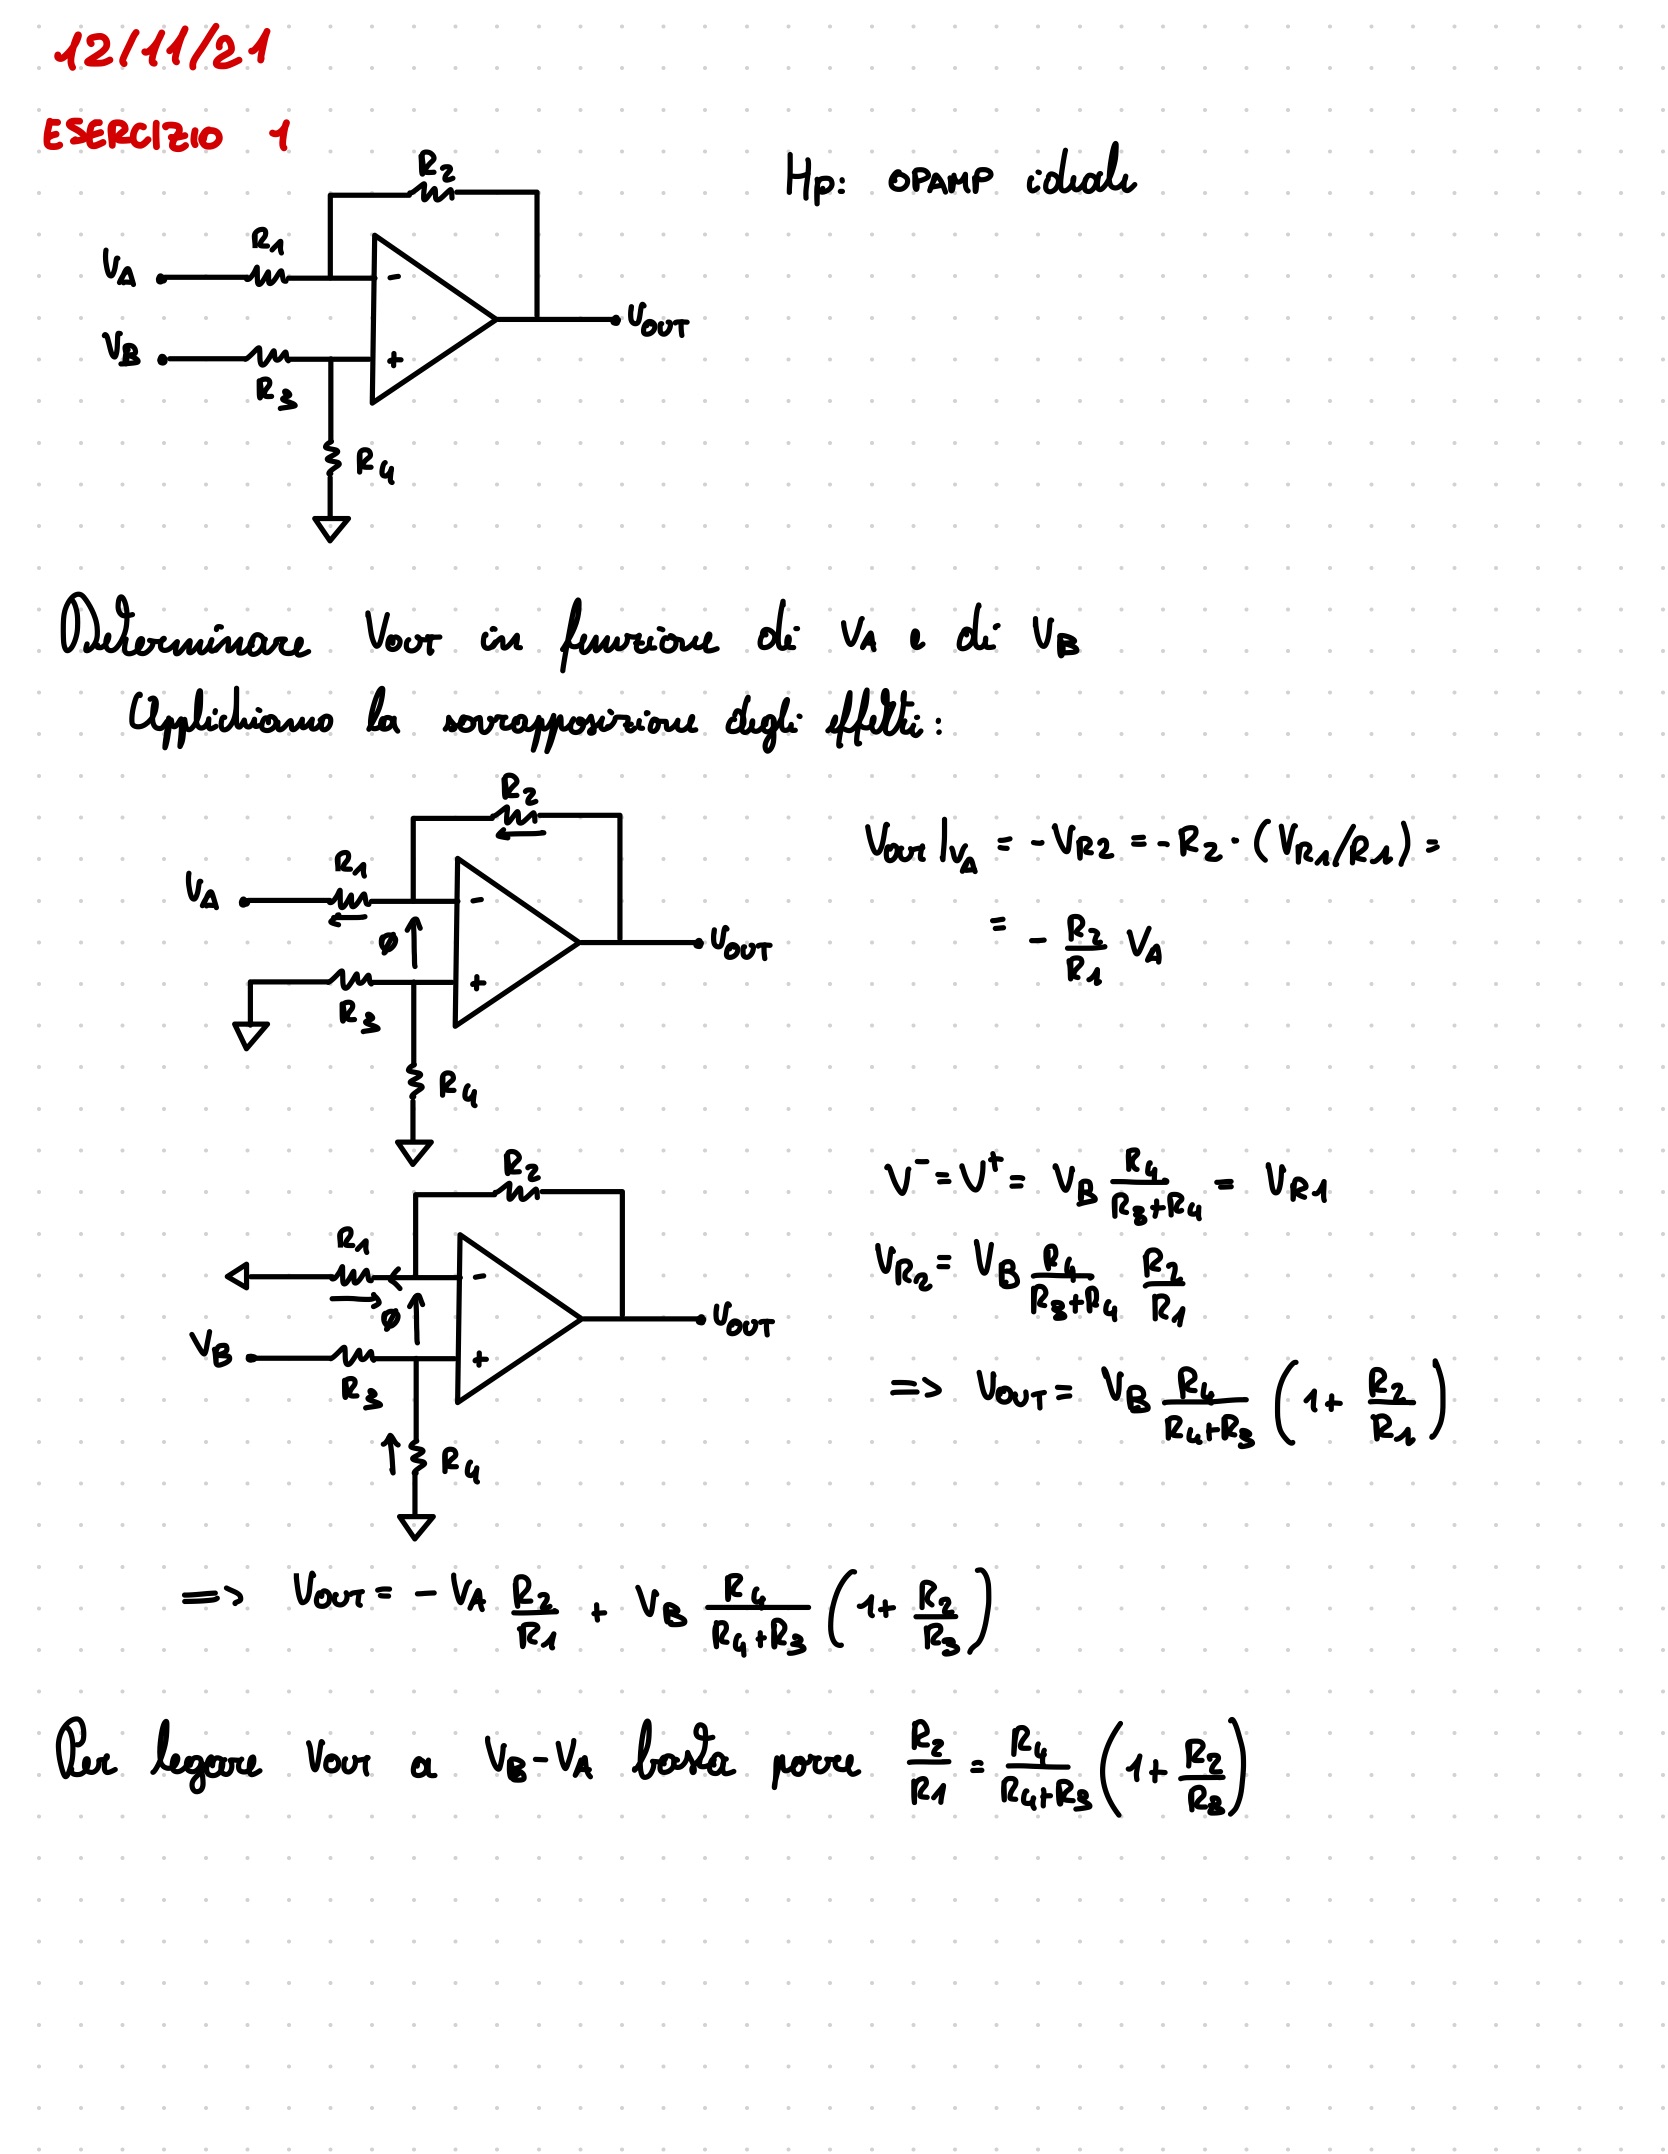 12/11/21
ESERCIZIO 1
Hp: OPAMP ideale
R2
R1
VA
-
VOUT
VB
+
R3
R4
Determinare VOUT in funzione di VA e di VB
Applichiamo la sovrapposizione degli effetti:
R2
VOUT|VA = -VR2 = -R2 · (VR1/R1) =
R1
VA
-
= - R2/R1 VA
Ø
VOUT
+
R3
R4
V⁻ = V⁺ = VB R4/(R3+R4) = VR1
R2
R1
-
VR2 = VB R4/(R3+R4) R2/R1
Ø
VOUT
VB
+
R3
=> VOUT = VB R4/(R4+R3) (1+ R2/R1)
R4
=> VOUT = - VA R2/R1 + VB R4/(R4+R3) (1+ R2/R3)
Per legare VOUT a VB-VA basta porre R2/R1 = R4/(R4+R3) (1+ R2/R3)